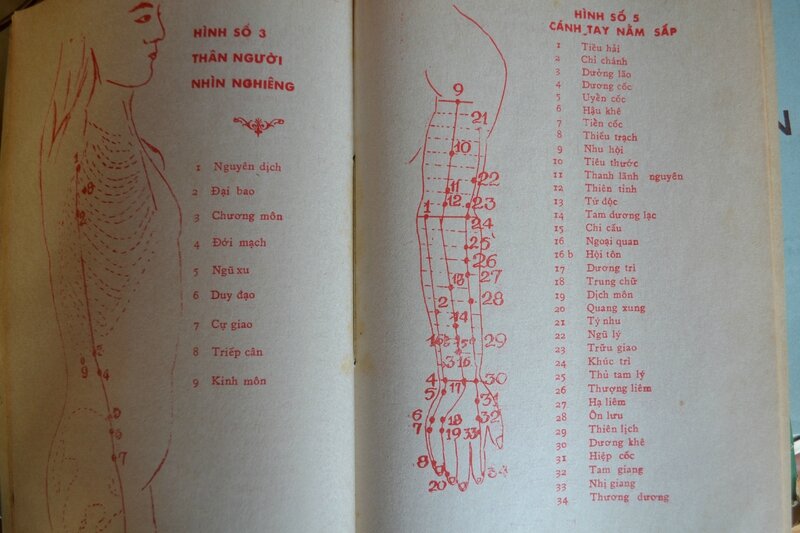 HÌNH SỐ 3
THÂN NGƯỜI
NHÌN NGHIÊNG
1 Nguyên dịch
2 Đại bao
3 Chương môn
4 Đới mạch
5 Ngũ xu
6 Duy đạo
7 Cự giao
8 Triếp cân
9 Kinh môn
1
8
2
3
9
4
5
6
7
HÌNH SỐ 5
CÁNH TAY NẰM SẤP
1 Tiêu hải
2 Chi chánh
3 Dưỡng lão
4 Dương cốc
5 Uyển cốc
6 Hậu khê
7 Tiền cốc
8 Thiếu trạch
9 Nhu hội
10 Tiêu thước
11 Thanh lãnh nguyên
12 Thiên tỉnh
13 Tứ độc
14 Tam dương lạc
15 Chi cấu
16 Ngoại quan
16 b Hội tôn
17 Dương trì
18 Trung chữ
19 Dịch môn
20 Quang xung
21 Tý nhu
22 Ngũ lý
23 Trữu giao
24 Khúc trì
25 Thủ tam lý
26 Thượng liêm
27 Hạ liêm
28 Ôn lưu
29 Thiên lịch
30 Dương khê
31 Hiệp cốc
32 Tam giang
33 Nhị giang
34 Thương dương
9
21
10
22
11
12
23
1
24
25
26
13
27
2
28
14
16b
15
29
3
16
4
17
30
5
31
6
18
32
7
19
33
8
20
34